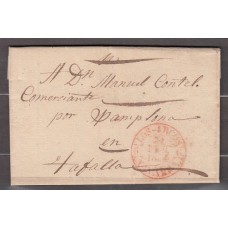 A Dn Manuel Contel.
Comerciante
por Pamplona
en
Tafalla